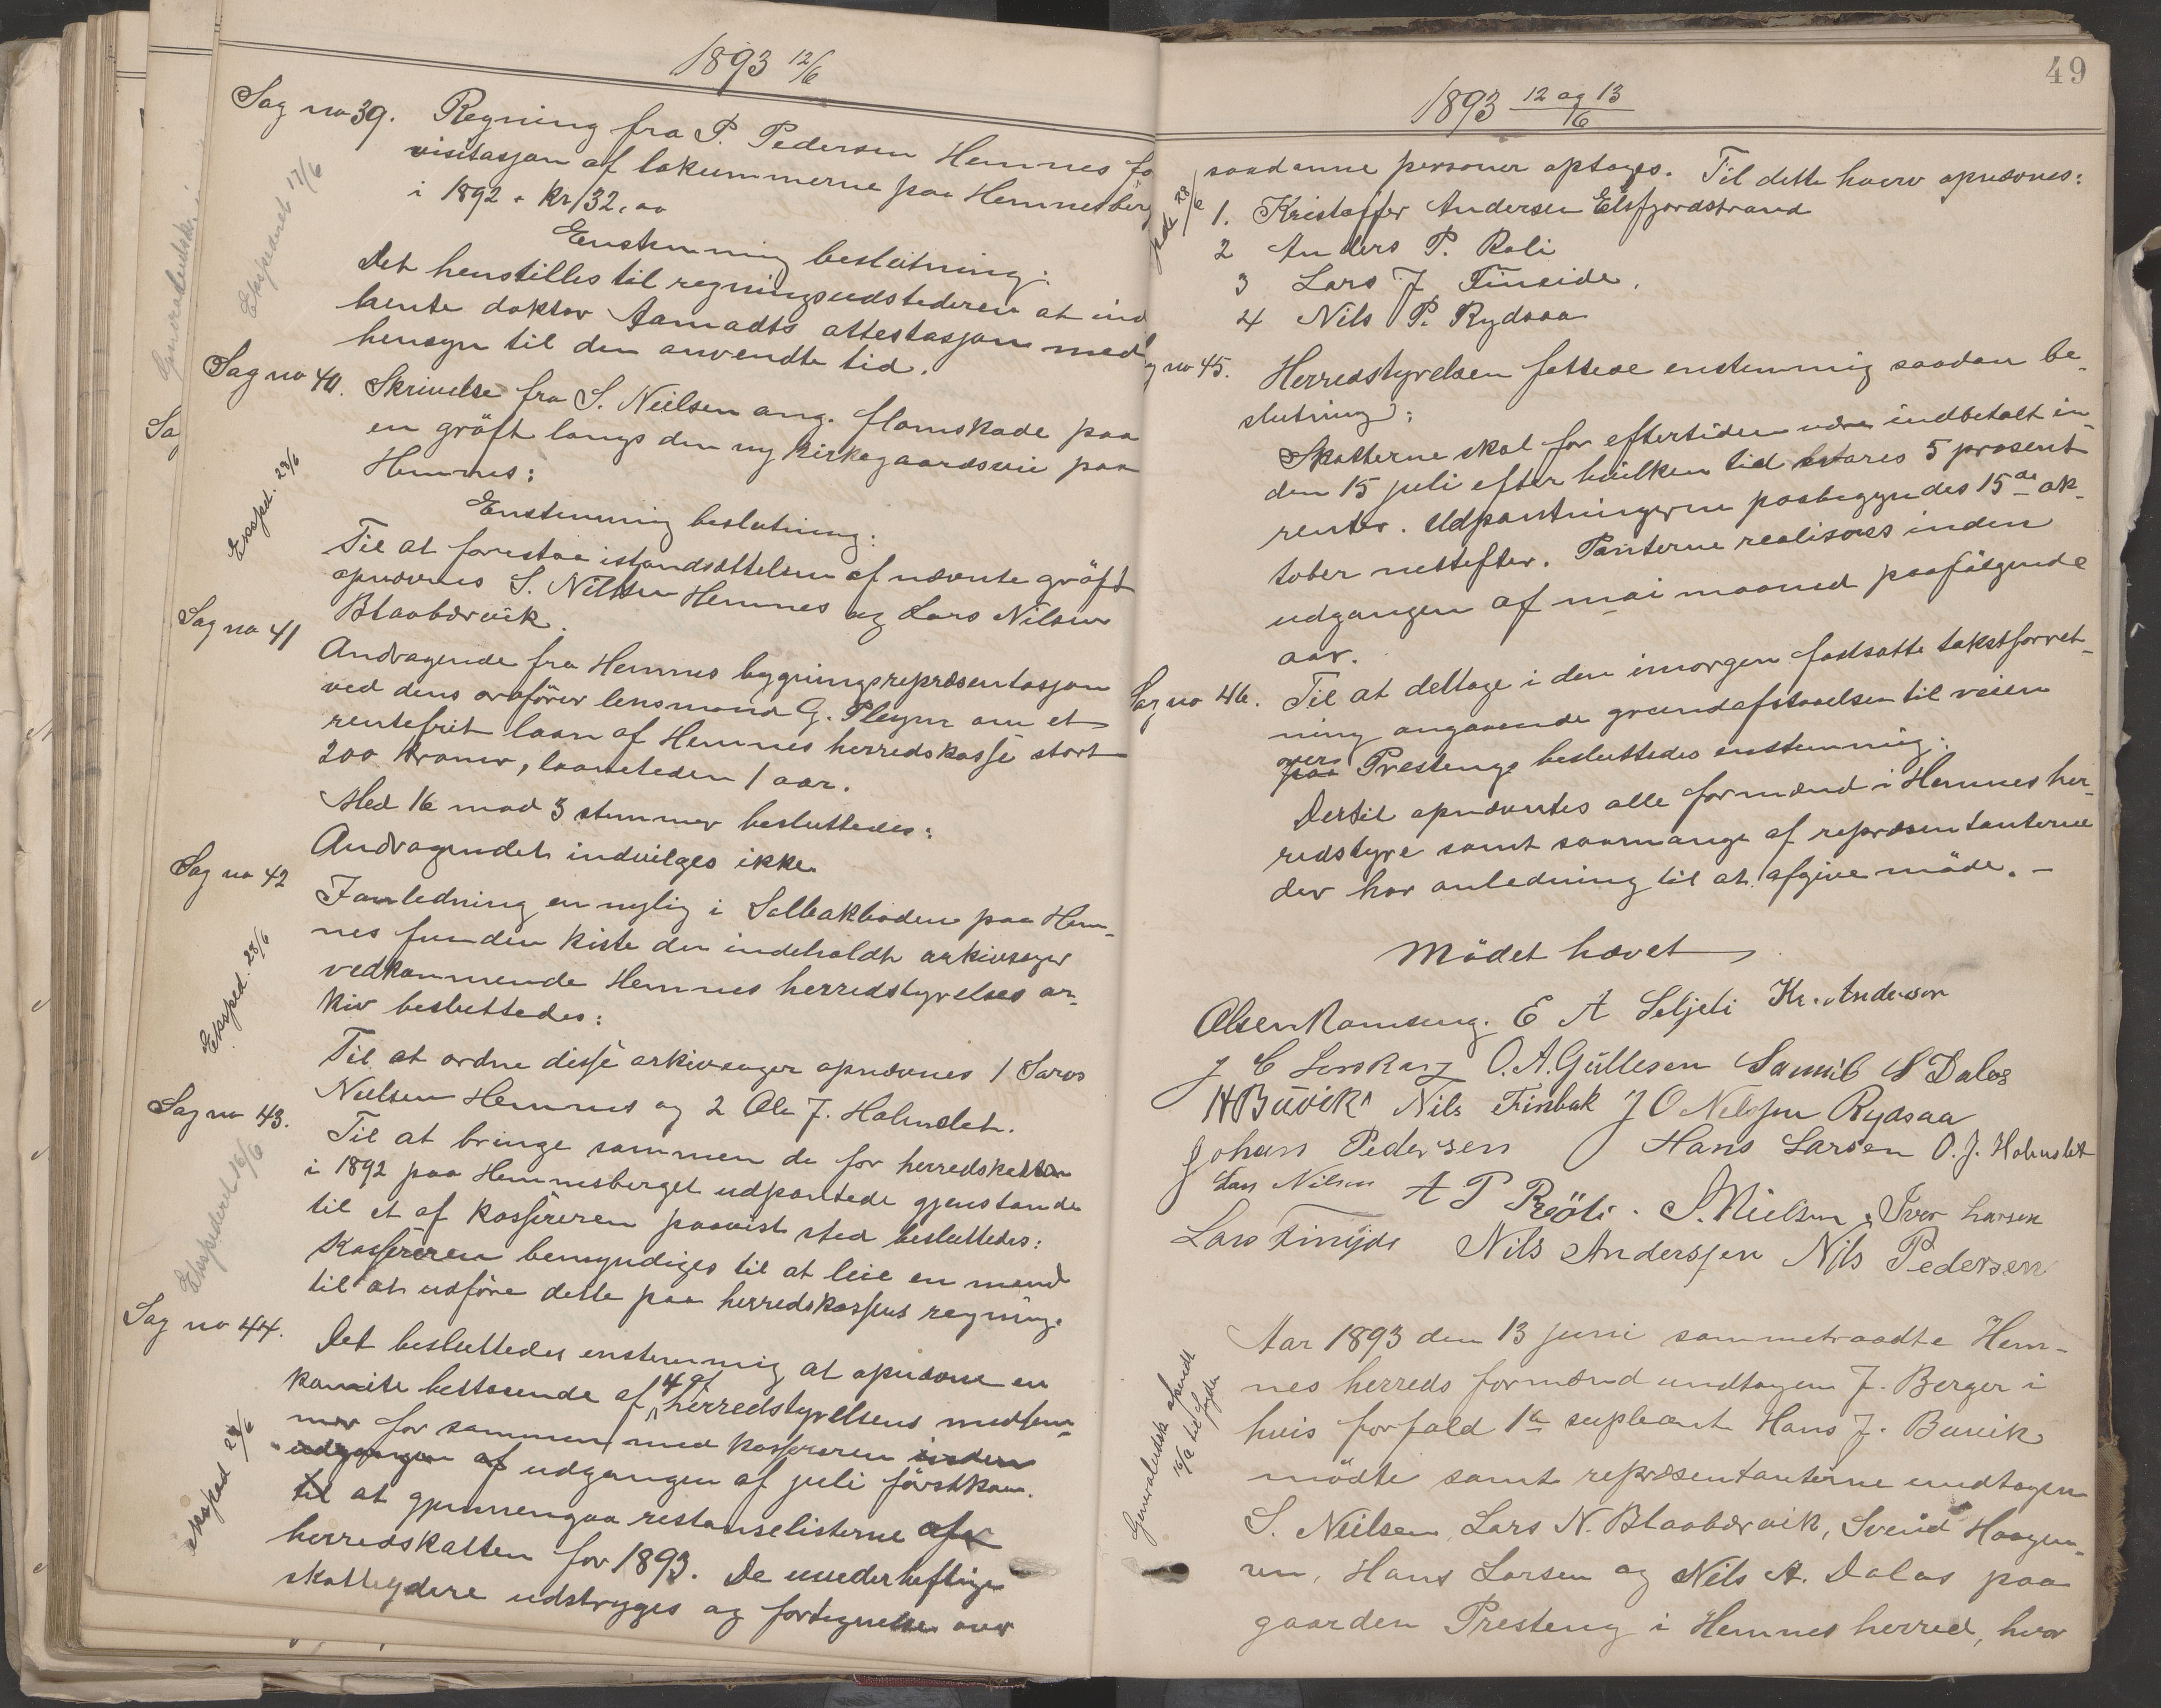 1893 12/6
Sag no 39. Regning fra P. Pedersen Hemnes fo
visitasjon af lokummerne paa Hemnesberg
i 1892 - kr 32,00
Enstemmig beslutning:
Det henstilles til regningsudstederen at ind
hente doktor Aamodts attestasjon med
hensyn til den anvendte tid.
Ekspederet 17/6
Sag no 40. Skrivelse fra S. Nielsen ang. flomskade paa
en gröft langs den ny kirkegaardsvei paa
Hemnes:
Enstemmig beslutning:
Til at forestaa istandsættelsen af nævnte gröft
opnævnes S. Nilsen Hemnes og Lars Nilsen
Blaabærvik.
Eksped. 28/6
Sag no 41 Andragende fra Hemnes bygningsrepræsentasjon
ved dens ordförer lensmand G. Pleym om et
rentefrit laan af Hemnes herredskasse stort
200 kroner, laanetiden 1 aar.
Med 16 mod 3 stemmer besluttedes:
Andragendet indvilges ikke.
Sag no 42 I anledning en nylig i Salbakboden paa Hem-
nes funden kiste der indeholdt arkivsager
vedkommende Hemnes herredstyrelses ar-
kiv besluttedes:
Til at ordne disse arkivsager opnævnes 1 Saros
Nielsen Hemnes og 2 Ole J. Holmslet.
Eksped. 28/6
Sag no 43. Til at bringe sammen de for herredskatten
i 1892 paa Hemnesberget udpantede gjenstande
til et af kassereren paavist sted besluttedes:
Kassereren bemyndiges til at leie en mand
til at udföre dette paa herredskassens regning.
Ekspederet 16/6
Sag no 44. Det besluttedes enstemmig at opnævne en
komite bestaaende af 4 af herredstyrelsens medlem-
mer for sammen med kassereren inden
udgangen af udgangen af juli förstkom.
til at gjennemgaa restanselisterne af
herredskatten for 1893. De uvederheftige
skatteydere udstryges og fortegnelse over
eksped 28/6
49
1893 12 og 13/6
saadanne personer optages. Til dette hverv opnævnes:
1. Kristoffer Andersen Elsfjordstrand
2 Anders P. Röli
3 Lars J. Fineide.
4 Nils P. Rydsaa
g no 45. Herredstyrelsen fattede enstemmig saadan be-
slutning:
Skatterne skal for eftertiden være indbetalt in-
den 15 juli efter hvilken tid svares 5 prosent
renter. Udpantningerne paabegyndes 15de ok-
tober nestefter. Panterne realiseres inden
udgangen af mai maaned paafölgende
aar.
Sag no 46. Til at deltage i den imorgen fastsatte takstforret-
ning angaaende grundafstaaelsen til veien
over
paa Presteng besluttedes enstemmig:
Dertil opnævntes alle formænd i Hemnes her-
redstyre samt saamange af repræsentanterne
der har anledning til at afgive möde. -
Mödet hævet
Olsen Ramseng. E A Seljeli Kr. Anderson
O.A. Gullesen Samuel S Dalos
H Buvik Nils Finbak J O Nelssen Rydsaa
Johan Pedersen Hans Larsen O.J. Holmslet
Lars Nilsen A P Rööli. S. Nielsen, Iver Larsen
Lars Finijde Nils Anderssen Nils Pedersen
Aar 1893 den 13 juni sammetraadte Hem-
nes herreds formænd undtagen J. Berger i
hvis forfald 1te supleant Hans J. Buvik
mödte samt repræsentanterne undtagen
S. Nielsen, Lars N. Blaabærvik, Svend Haagen-
sen, Hans Larsen og Nils A. Dalos paa
gaarden Presteng i Hemnes herred, hvor
Generaludsk afsendt
16/6 til fogden